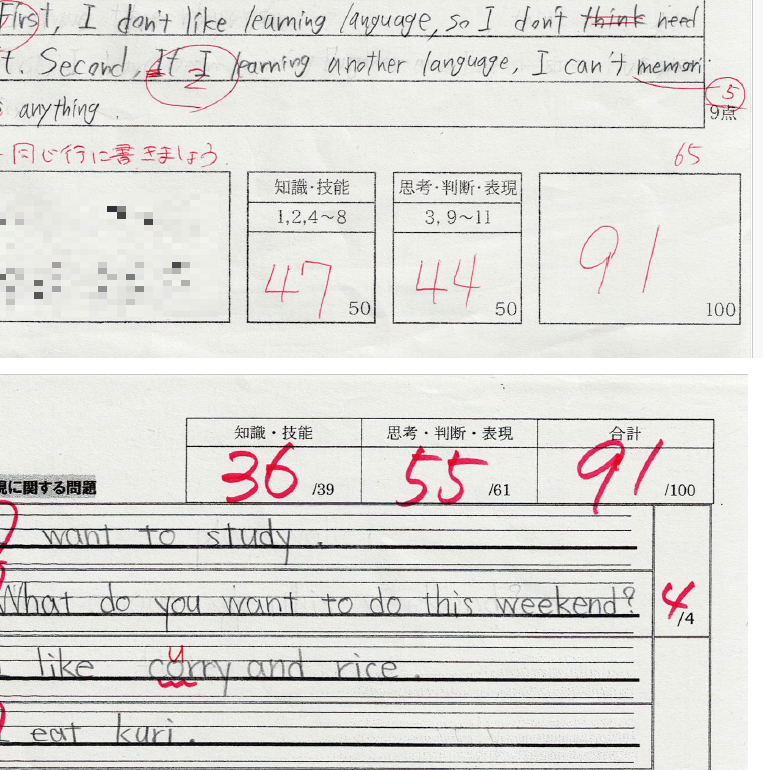 First, I don't like learning language, so I don't think need
t. Second, It I learning another language, I can't memori
2
anything.
5
9点
同じ行に書きましょう.
65
知識・技能 思考・判断・表現
1,2,4～8 3, 9～11
47 50 44 50 91 100
知識・技能 思考・判断・表現 合計
36 /39 55 /61 91 /100
現に関する問題
want to study.
What do you want to do this weekend? 4 /4
u
like corry and rice.
eat kuri.